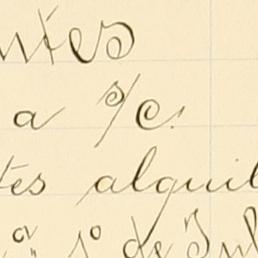 ntes
a s/c.
tes alquil
1º de Jul